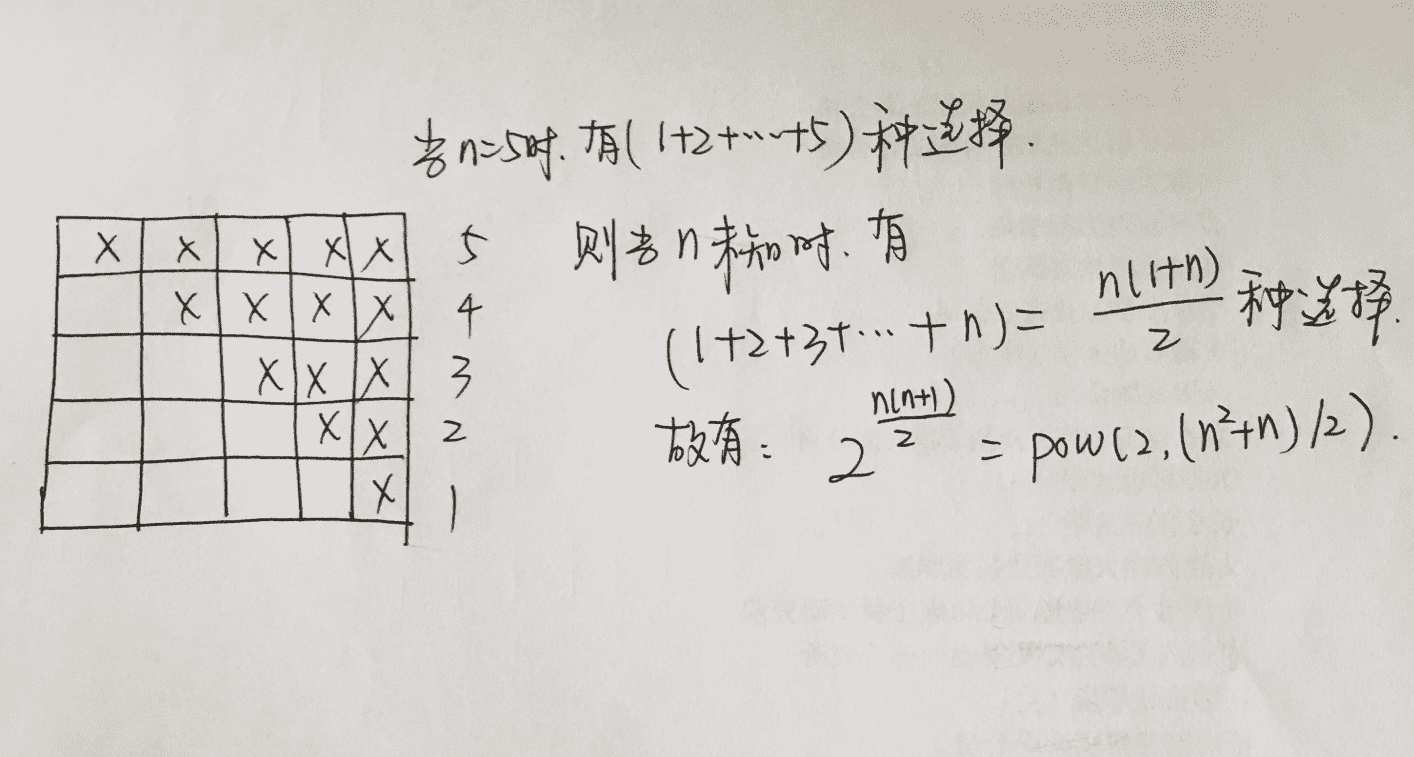 当n=5时.有(1+2+…+5)种选择.
X X X X X 5
X X X X 4
X X X 3
X X 2
X 1
则当n未知时.有
(1+2+3+…+n)= n(1+n)/2 种选择.
故有: 2^(n(n+1)/2) = pow(2,(n²+n)/2).